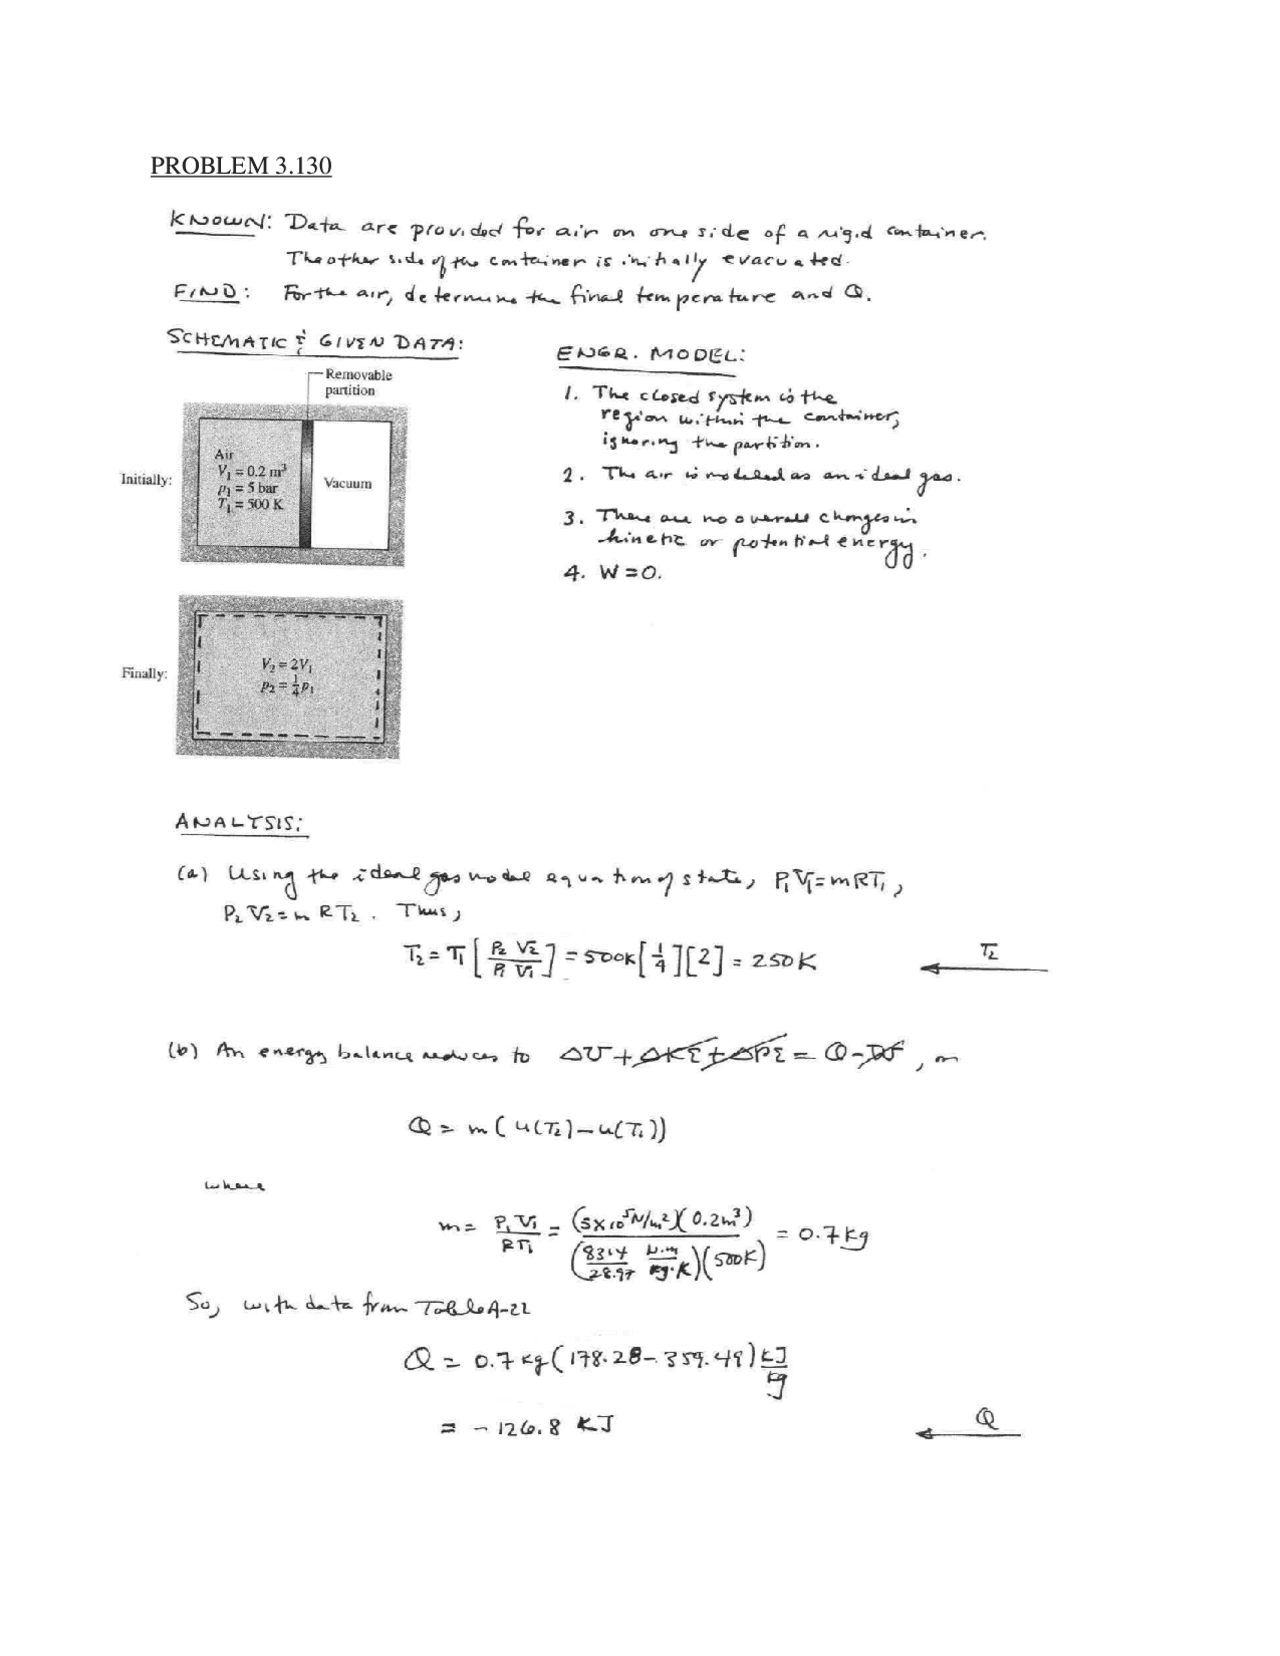 PROBLEM 3.130
KNOWN: Data are provided for air on one side of a rigid container.
The other side of the container is initially evacuated.
FIND: For the air, determine the final temperature and Q.
SCHEMATIC & GIVEN DATA:
Removable
partition
Initially:
Air
V₁ = 0.2 m³
p₁ = 5 bar
T₁ = 500 K
Vacuum
Finally:
V₂ = 2V₁
p₂ = ¼p₁
ENGR. MODEL:
1. The closed system is the
region within the container,
ignoring the partition.
2. The air is modeled as an ideal gas.
3. There are no overall changes in
kinetic or potential energy.
4. W = 0.
ANALYSIS:
(a) Using the ideal gas model equation of state, P₁V₁ = mRT₁,
P₂V₂ = mRT₂. Thus,
T₂ = T₁ [P₂ V₂ / P₁ V₁] = 500K [1/4][2] = 250K
T₂
(b) An energy balance reduces to ΔU + ΔKE + ΔPE = Q - W, or
Q = m(u(T₂) - u(T₁))
where
m = P₁V₁ / RT₁ = (5×10⁵ N/m²)(0.2m³) / (8314/28.97 N·m/kg·K)(500K) = 0.7 kg
So, with data from Table A-22
Q = 0.7 kg (178.28 - 359.49) kJ/kg
= -126.8 kJ
Q